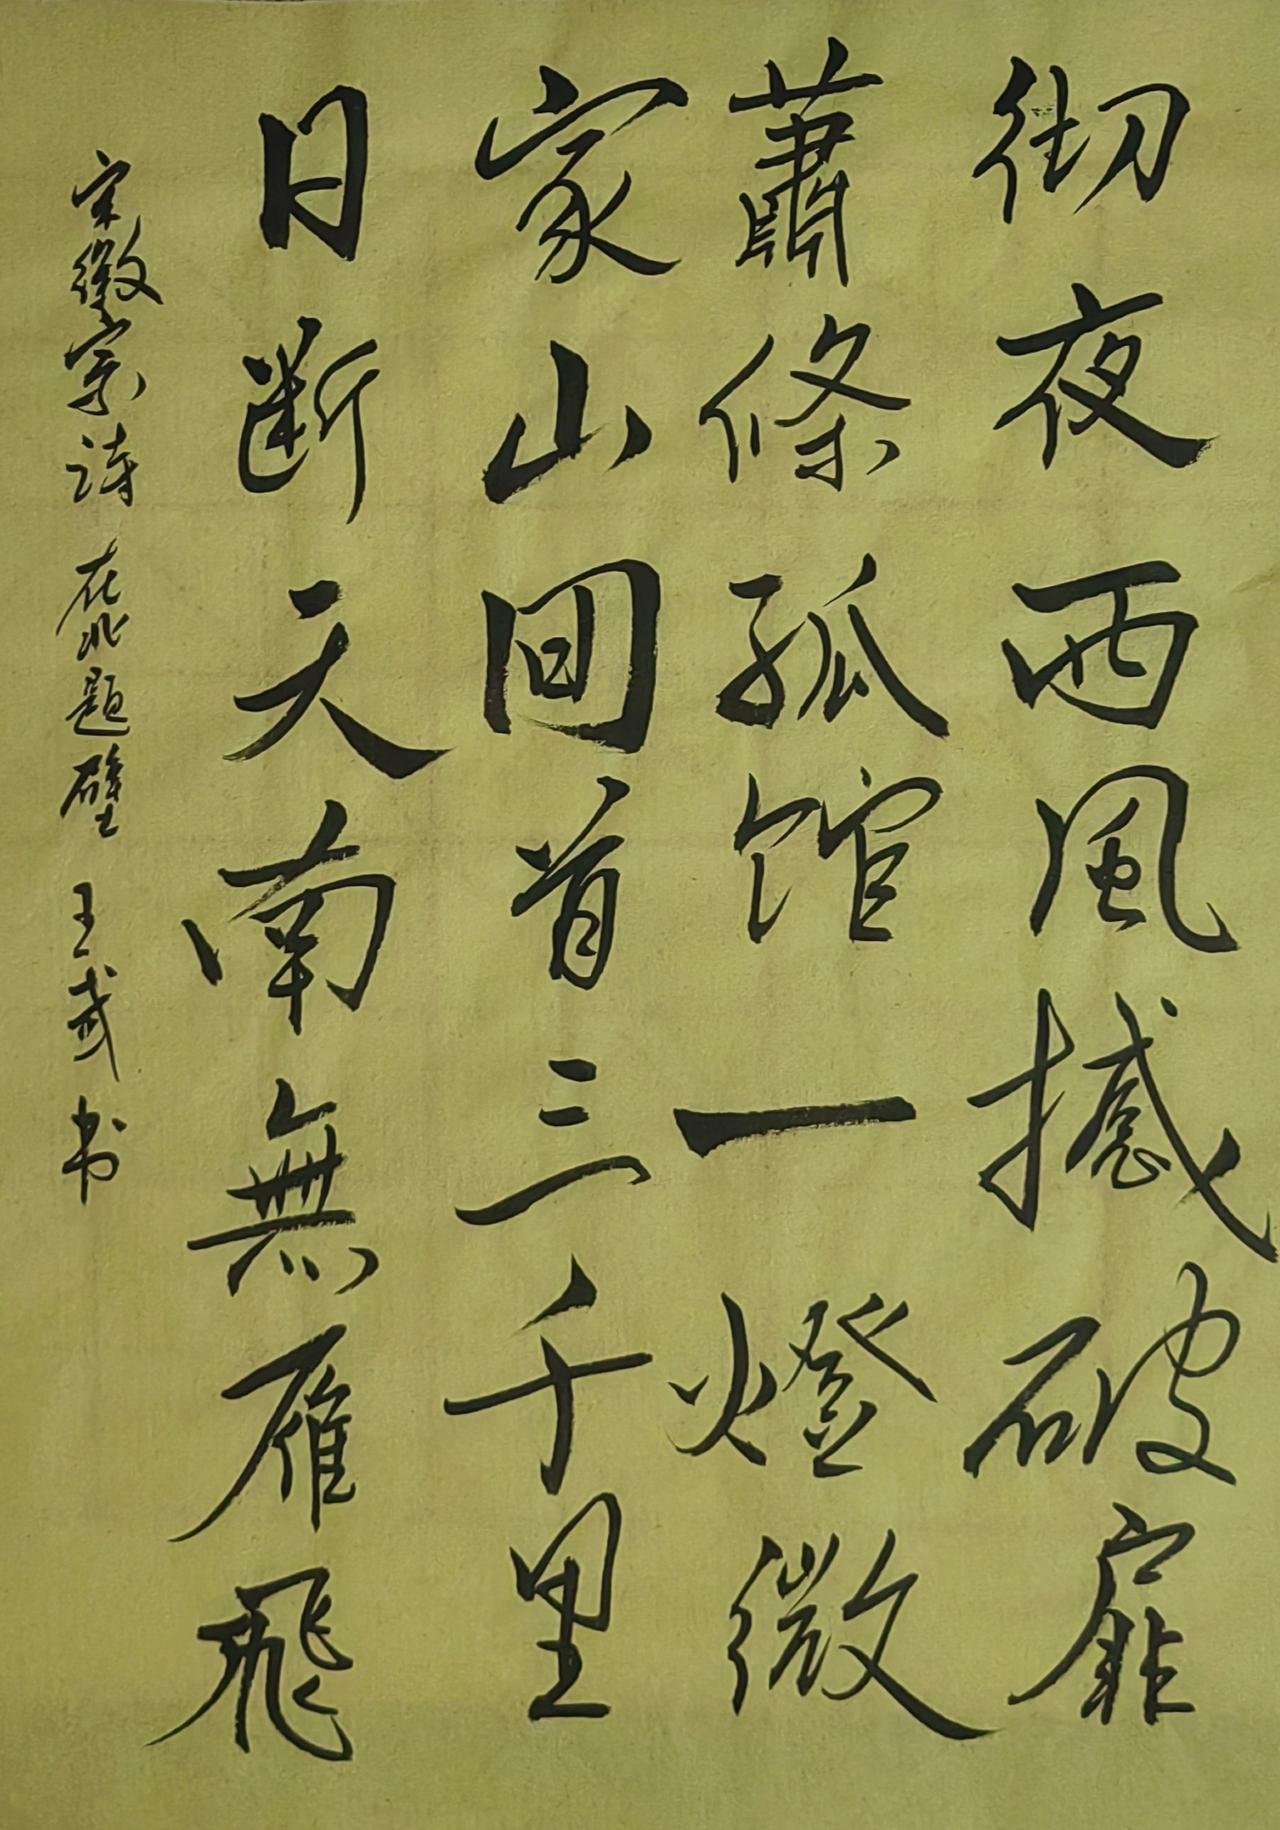 彻夜西风撼破扉
蕭條孤馆一燈微
家山回首三千里
日断天南無雁飛
宋徽宗诗在北题壁王或书